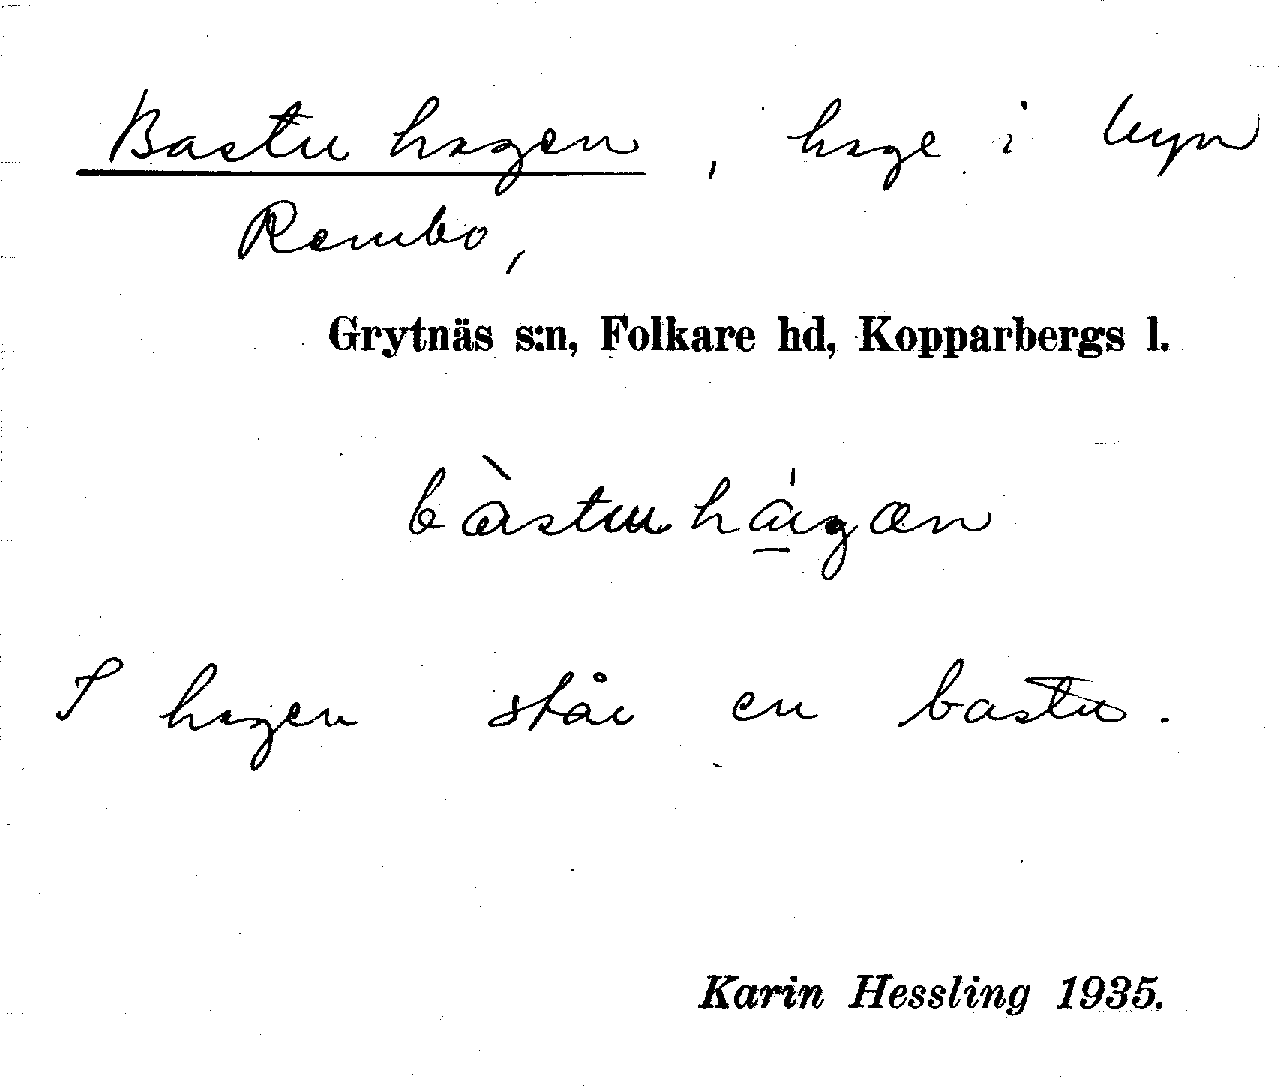 Bastuhagen, hage i byn
Rembo,
Grytnäs s:n, Folkare hd, Kopparbergs l.
I hagen står en bastu.
Karin Hessling 1935.